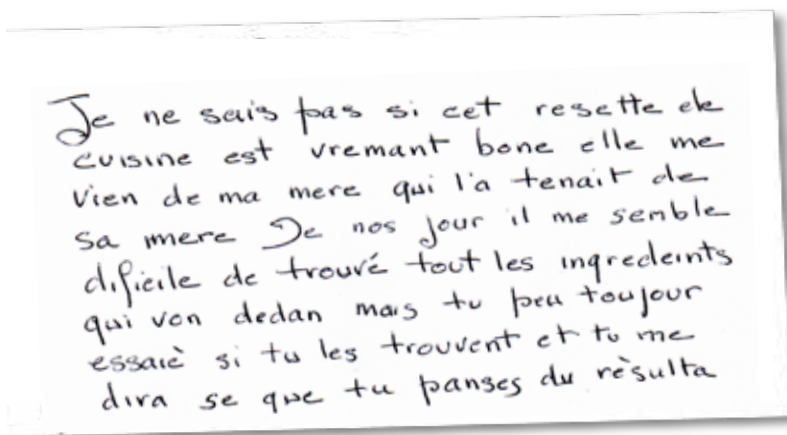 Je ne sais pas si cet resette de
cuisine est vremant bone elle me
vien de ma mere qui l'a tenait de
sa mere De nos jour il me semble
dificile de trouvé tout les ingredeints
qui von dedan mais tu peu toujour
essaiè si tu les trouvent et tu me
dira se que tu panses du rèsulta